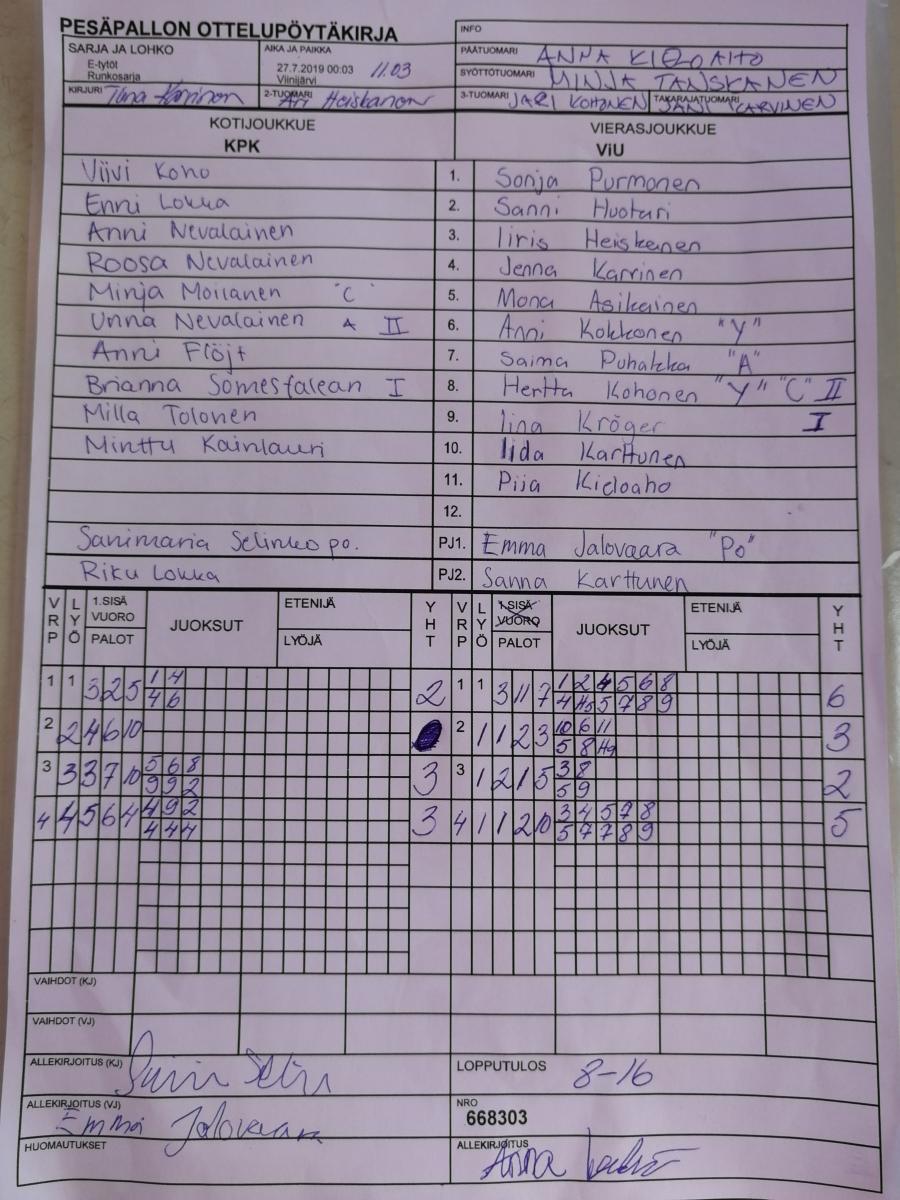 PESÄPALLON OTTELUPÖYTÄKIRJA
INFO
SARJA JA LOHKO
E-tytöt
Runkosarja
AIKA JA PAIKKA
27.7.2019 00:03 11.03
Viinijärvi
PÄÄTUOMARI ANNA
SYÖTTÖTUOMARI MINJA TANSKANEN
KIRJURI
2-TUOMARI Ari Heiskanen
3-TUOMARI JARI KOHONEN TAKARAJATUOMARI JANI KARVINEN
KOTIJOUKKUE VIERASJOUKKUE
KPK ViU
Viivi Koho 1. Sonja Purmonen
Enni Lokka 2. Sanni Huoturi
Anni Nevalainen 3. Iiris Heiskanen
Roosa Nevalainen 4. Jenna Karvinen
Minja Moilanen "C" 5. Mona Asikainen
Unna Nevalainen A II 6. Anni Kokkonen "Y"
Anni Flöjt 7. Saima Puhakka "A"
Brianna Somesfalean I 8. Hertta Kohonen "Y" "C" II
Milla Tolonen 9. Iina Kröger I
Minttu Kainlauri 10. Iida Karttunen
11. Piia Kieloaho
12.
Sanimaria Selinko po. PJ1. Emma Jalovaara "Po"
Riku Lokka PJ2. Sanna Karttunen
VRP LYÖ 1.SISÄ VUORO PALOT JUOKSUT ETENIJÄ LYÖJÄ YHT VRP LYÖ 1.SISÄ VUORO PALOT JUOKSUT ETENIJÄ LYÖJÄ YHT
1 1 3 2 5 1 4 2 1 1 3 11 7 1 2 4 5 6 8 6
4 6 4 5 7 8 9
2 2 4 6 10 2 1 1 2 3 10 6 11 3
5 8
3 3 3 7 10 5 6 8 3 3 1 2 1 5 3 8 2
9 9 2 5 9
4 4 5 6 4 4 9 2 3 4 1 1 2 10 3 4 5 7 8 5
4 4 4 5 7 7 8 9
VAIHDOT (KJ)
VAIHDOT (VJ)
ALLEKIRJOITUS (KJ)
LOPPUTULOS 8-16
ALLEKIRJOITUS (VJ) Emma Jalovaara
NRO
668303
HUOMAUTUKSET
ALLEKIRJOITUS Anna